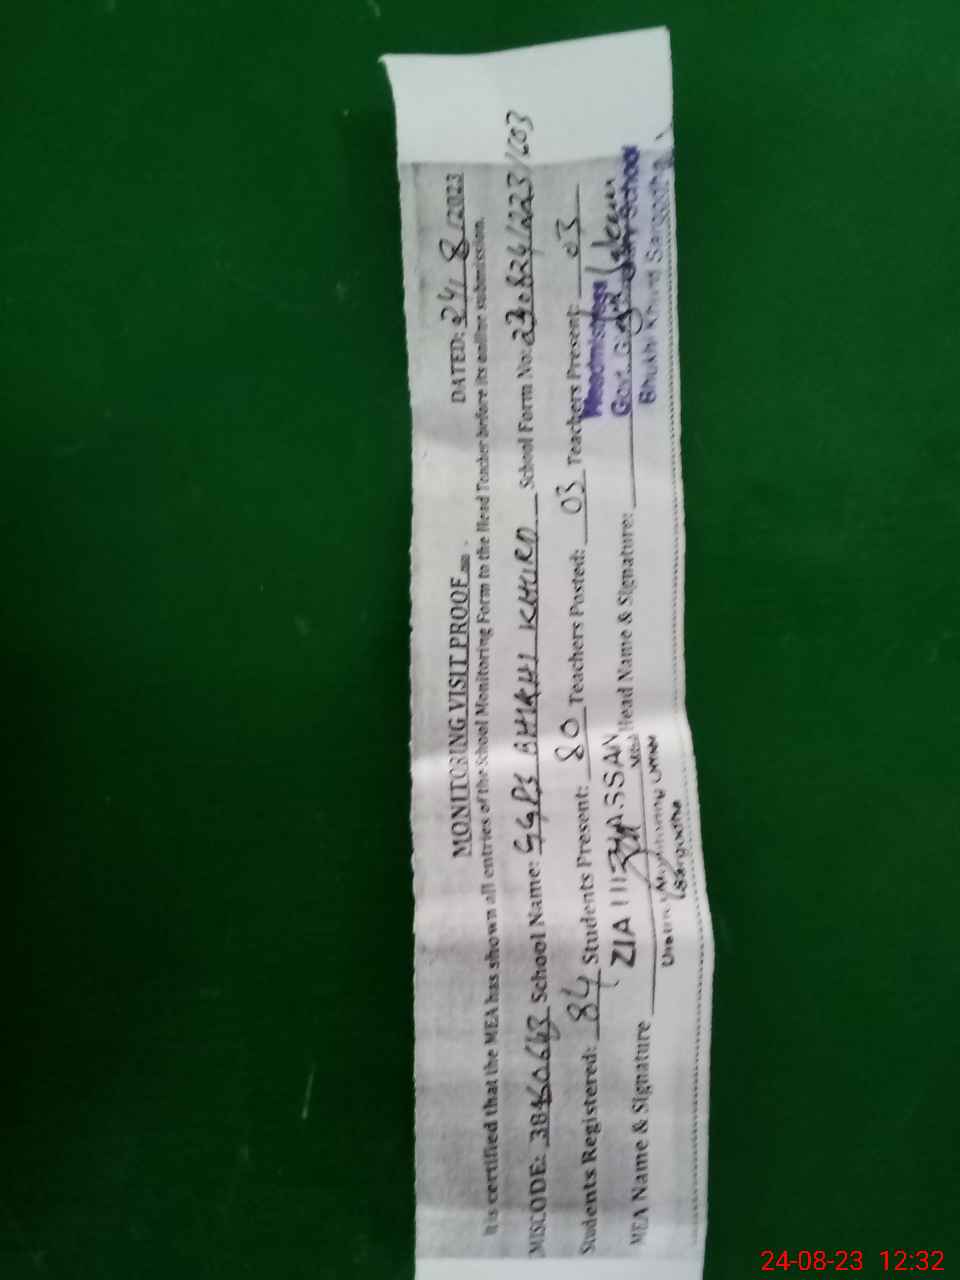 MONITORING VISIT PROOF
DATED: 24/ 8/2023
It is certified that the MEA has shown all entries of the School Monitoring Form to the Head Teacher before its online submission.
MISCODE: 38460643 School Name: GGPS BHIKHI KHURD School Form No: 230824/223/603
Students Registered: 84 Students Present: 80 Teachers Posted: 03 Teachers Present: 03
MEA Name & Signature ZIA HASSAN Head Name & Signature:
MEA
Monitoring
Sargodha
Headmistress
Govt. School
Khurd Sargodha
24-08-23 12:32